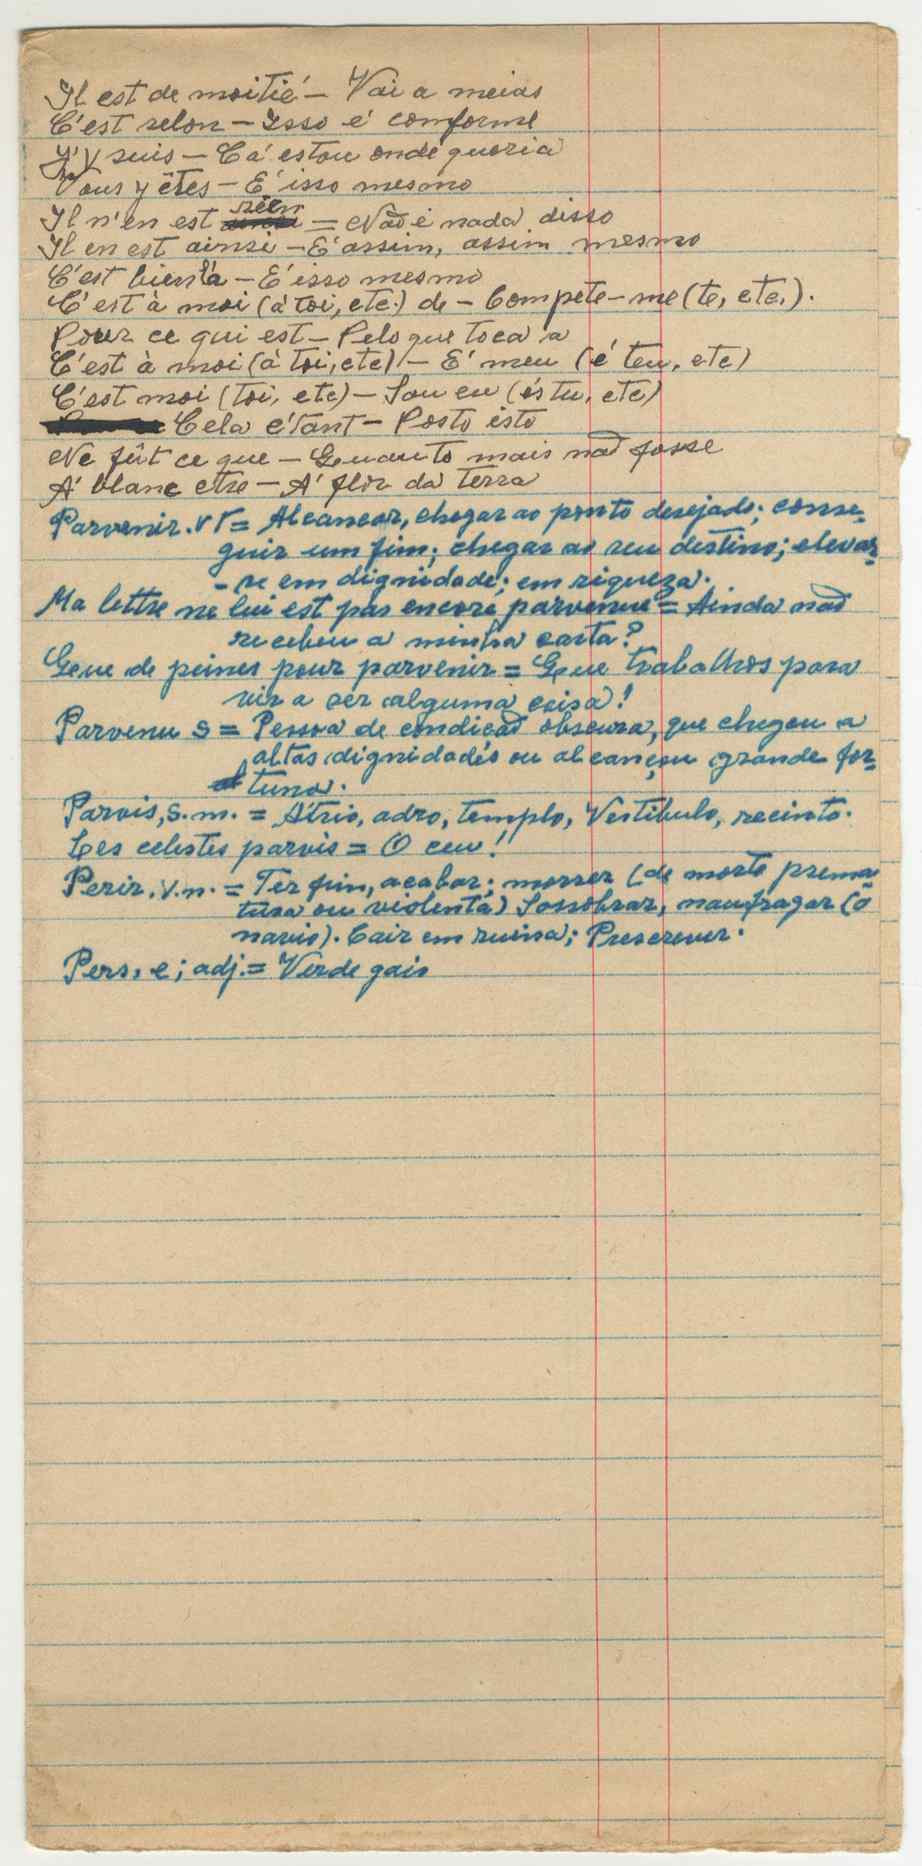 Il est de moitié – Vai a meias
C'est selon – Isso é conforme
J'y suis – Cá estou onde queria
Vous y êtes – E' isso mesmo
Il n'en est rien = Não é nada disso
Il en est ainsi – E' assim, assim mesmo
C'est bien là – E' isso mesmo
C'est à moi (à toi, etc.) de – Compete-me (te, etc.).
Pour ce qui est – Pelo que toca a
C'est à moi (à toi, etc) – E' meu (é teu, etc)
C'est moi (toi, etc) – Sou eu (és tu, etc)
Cela étant – Posto isto
Ne fût ce que – Quanto mais não fosse
A' blanc etre – A' flor da terra
Parvenir. v r = Alcancar, chegar ao ponto desejado; conse-
guir um fim; chegar ao seu destino; elevar-
-se em dignidade; em riqueza.
Ma lettre ne lui est pas encore parvenue = Ainda não
recebeu a minha carta?
Que de peines pour parvenir = Que trabalhos para
vir a ser alguma coisa!
Parvenu s = Pessoa de condição obscura, que chegou a
altas dignidades ou alcançou grande for-
tuna.
Parvis, s.m. = Atrio, adro, templo, Vestibulo, recinto.
Les celestes parvis = O ceu!
Perir. v.n. = Ter fim, acabar; morrer (de morte prema-
tura ou violenta) Sossobrar, naufragar (o
navio). Cair em ruina; Prescrever.
Pers, e; adj. = Verde gaio